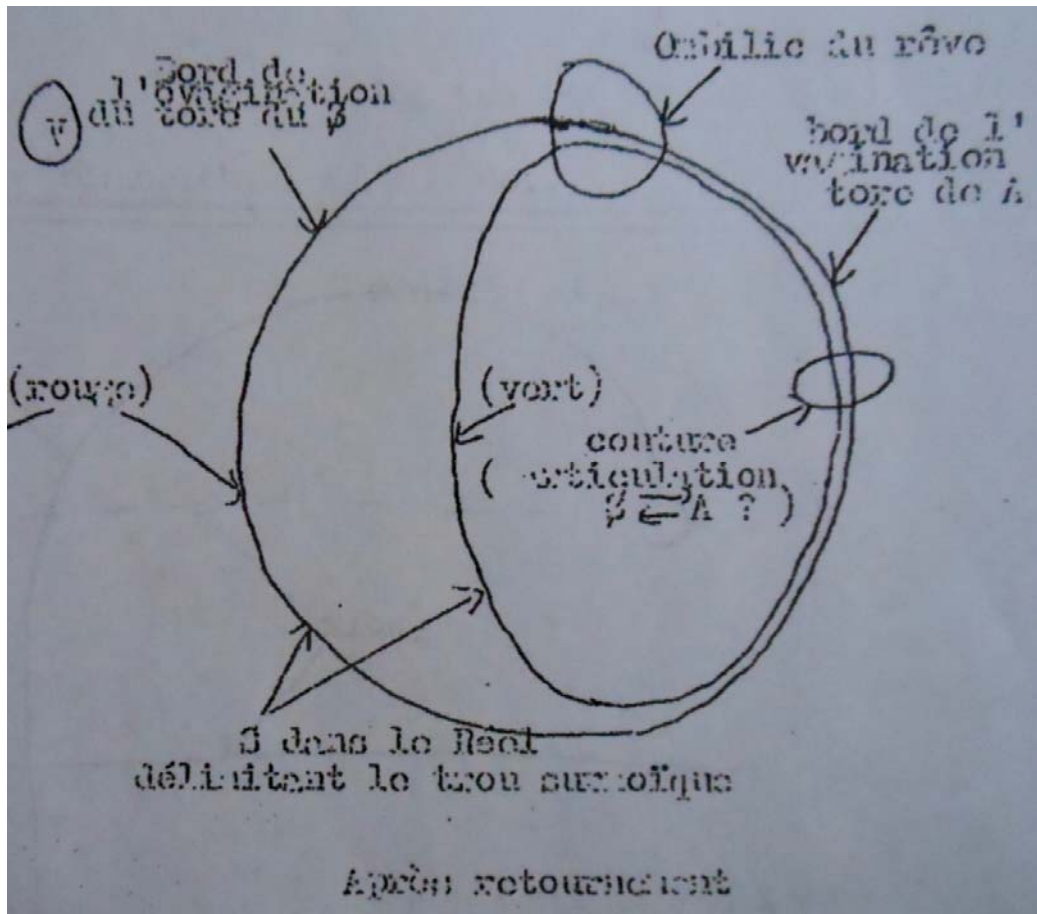 Ombilic du rêve
Bord de
l'évagination
du tore du $
V
bord de l'
vagination
tore de A
(rouge)
(vert)
couture
( articulation
$ ⇄ A ? )
S dans le Réel
délimitant le trou surmoïque
Après retournement